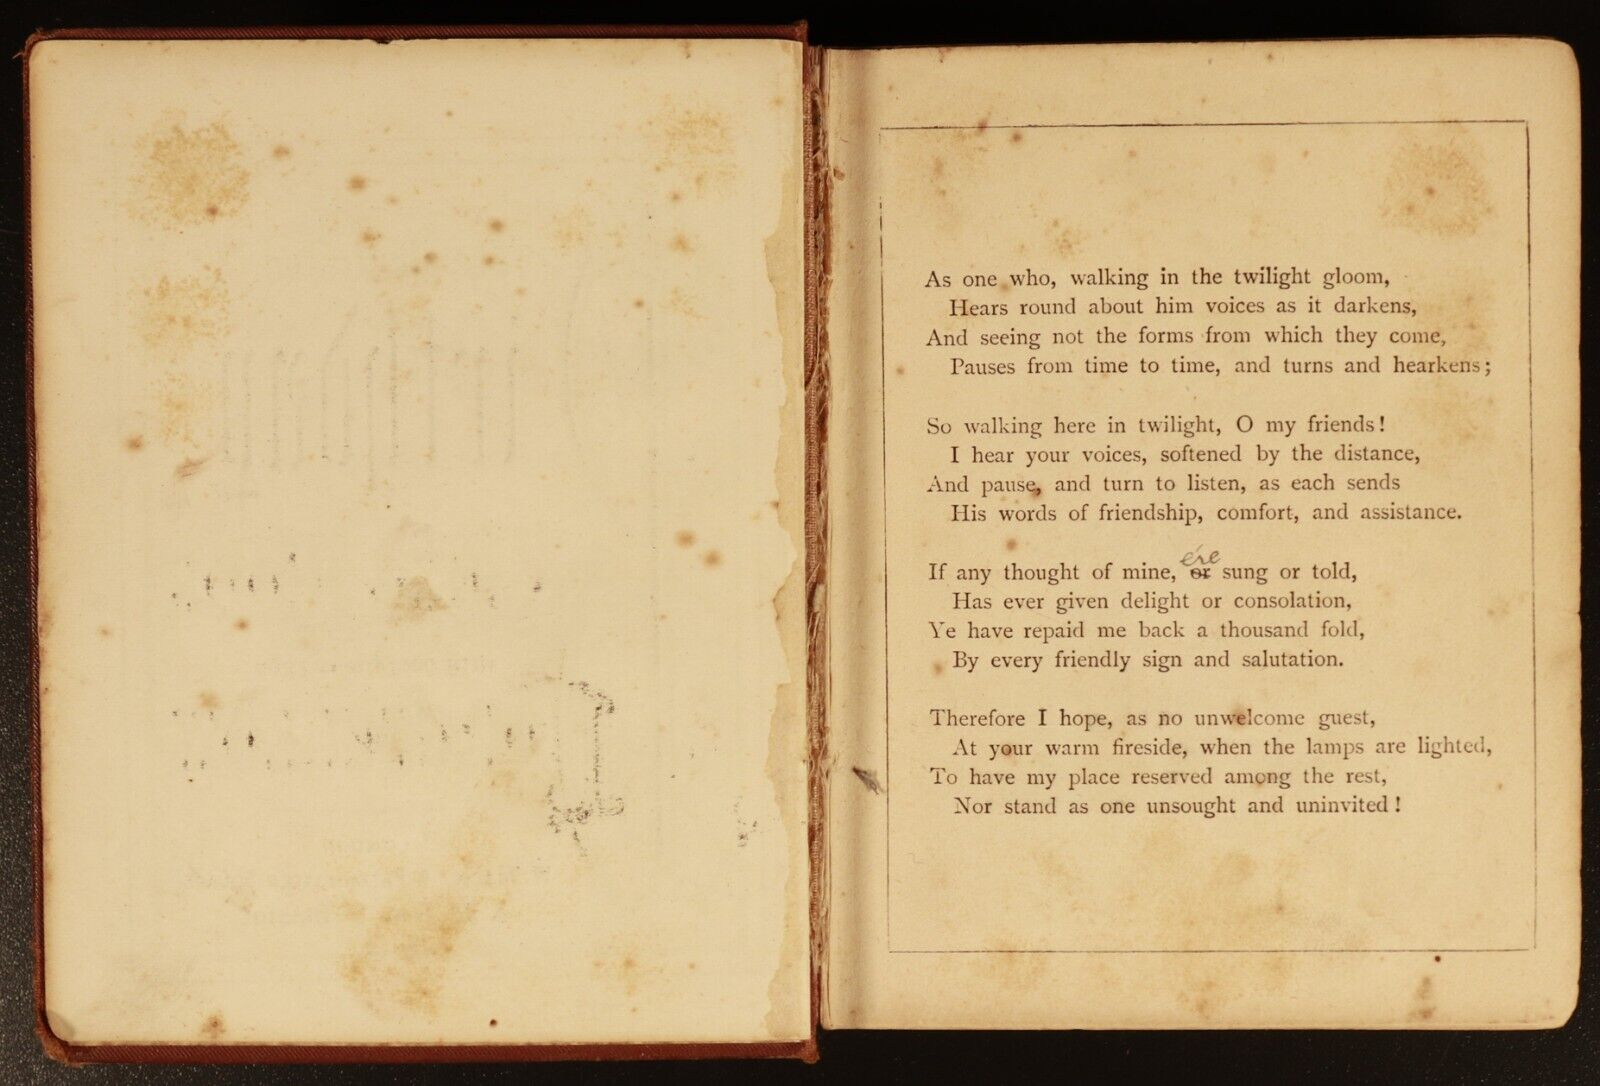 As one who, walking in the twilight gloom,
Hears round about him voices as it darkens,
And seeing not the forms from which they come,
Pauses from time to time, and turns and hearkens;
So walking here in twilight, O my friends!
I hear your voices, softened by the distance,
And pause, and turn to listen, as each sends
His words of friendship, comfort, and assistance.
ere
If any thought of mine, or sung or told,
Has ever given delight or consolation,
Ye have repaid me back a thousand fold,
By every friendly sign and salutation.
Therefore I hope, as no unwelcome guest,
At your warm fireside, when the lamps are lighted,
To have my place reserved among the rest,
Nor stand as one unsought and uninvited!